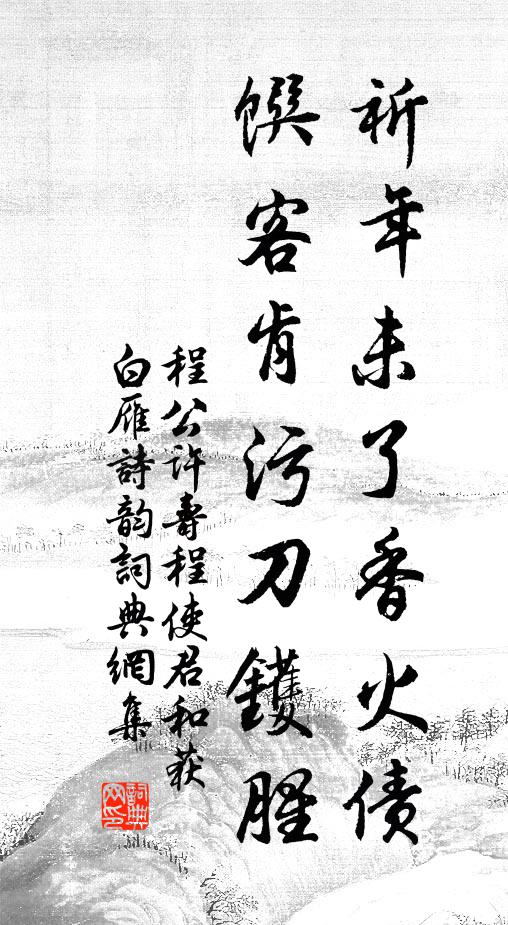 祈年未了香火债
馔客肯污刀鑊腥
程公许壽程使君和获
白雁詩韵詞典網集
詞典
网印